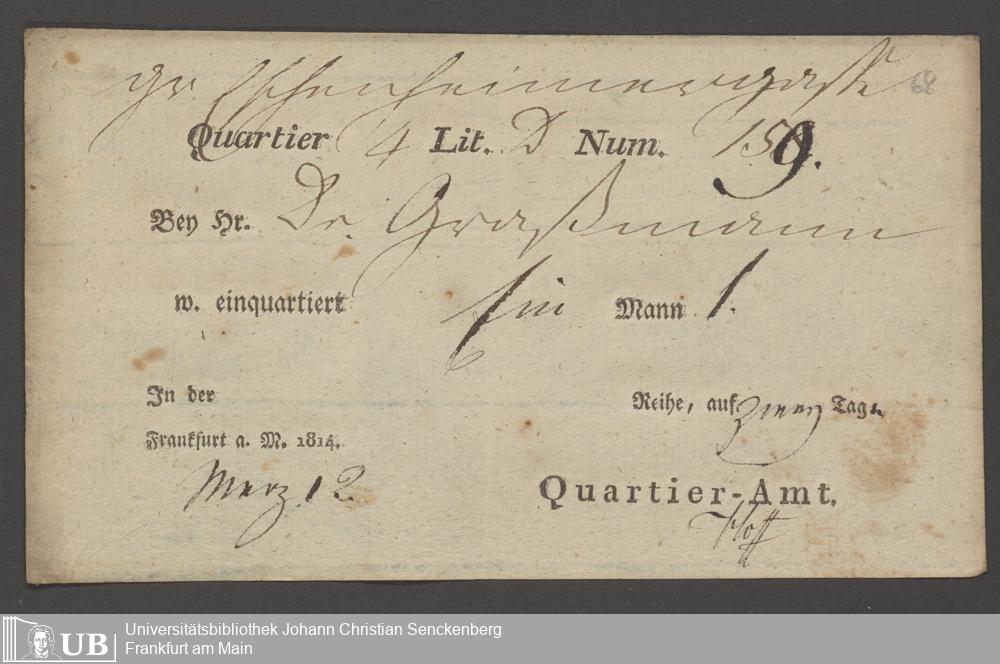 gr Eschenheimergasse
68
Quartier 4 Lit. D Num. 159.
Bey Hr. Dr. Graßmann
w. einquartiert Ein Mann 1.
In der Reihe, auf zwey Tage.
Frankfurt a. M. 1814.
Merz 12
Quartier-Amt.
UB
Universitätsbibliothek Johann Christian Senckenberg
Frankfurt am Main